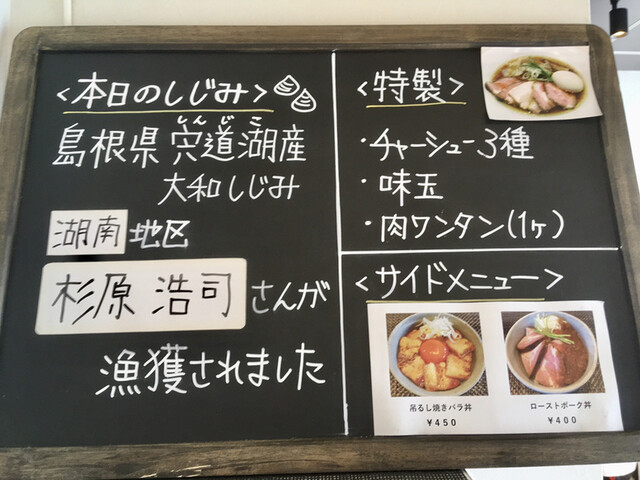 <本日のしじみ>
しんじこ
島根県 宍道湖産
大和しじみ
湖南 地区
杉原 浩司 さんが
漁獲されました
<特製>
・チャーシュー3種
・味玉
・肉ワンタン(1ヶ)
<サイドメニュー>
吊るし焼きバラ丼
¥450
ローストポーク丼
¥400